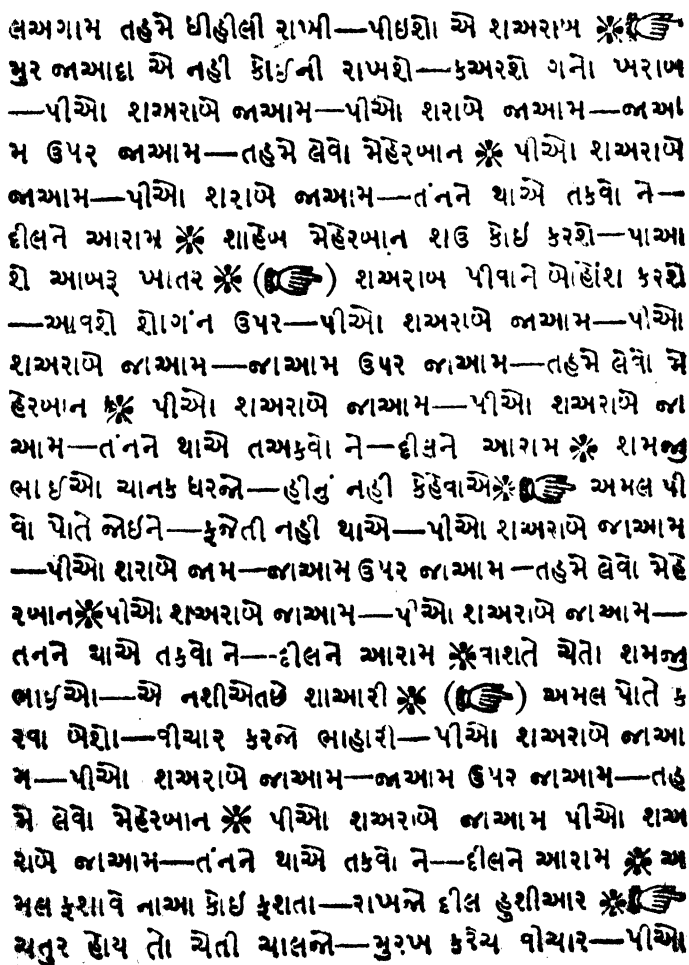 લઅગામ તહમે ઘીહીલી રાખી—પીઇશો એ શઅરાબ ❋☞
મુર જાઆદા એ નહી કોઈની રાખશે—કઅરશે ગનો ખરાબ
—પીઓ શઅરાબે જાઆમ—પીઓ શરાબે જાઆમ—જાઆ
મ ઉપર જાઆમ—તહમે લેવો મેહેરબાન ❋ પીઓ શઅરાબે
જાઆમ—પીઓ શરાબે જાઆમ—તંનને થાએ તકવો ને—
દીલને આરામ ❋ શાહેબ મેહેરબાન શઉ કોઈ કરશે—પાઆ
શે આબરૂ ખાતર ❋ (☞) શઅરાબ પીવાને બોહોંશ કરશે
—આવશે શોગંન ઉપર—પીઓ શઅરાબે જાઆમ—પીઓ
શઅરાબે જાઆમ—જાઆમ ઉપર જાઆમ—તહમે લેવો મે
હેરબાન ❋ પીઓ શઅરાબે જાઆમ—પીઓ શઅરાબે જા
આમ—તંનને થાએ તઅકવો ને—દીલને આરામ ❋ શમજુ
ભાઈઓ ચાનક ધરજો—હીનું નહી કેહેવાએ❋☞ અમલ પી
વો પોતે જોઇને—ફજેતી નહી થાએ—પીઓ શઅરાબે જાઆમ
—પીઓ શરાબે જામ—જાઆમ ઉપર જાઆમ—તહમે લેવો મેહે
રબાન❋પીઓ શઅરાબે જાઆમ—પીઓ શઅરાબે જાઆમ—
તનને થાએ તકવો ને—દીલને આરામ ❋વાશતે ચેતો શમજુ
ભાઈઓ—એ નશીએતછે શાઆરી ❋ (☞) અમલ પોતે ક
રવા બેશો—વીચાર કરજો ભાહારી—પીઓ શઅરાબે જાઆ
મ—પીઓ શઅરાબે જાઆમ—જાઆમ ઉપર જાઆમ—તહ
મે લેવો મેહેરબાન ❋ પીઓ શઅરાબે જાઆમ પીઓ શઅ
રાબે જાઆમ—તંનને થાએ તકવો ને—દીલને આરામ ❋ અ
મલ ફશાવે નાઆ કોઇ ફશતા—રાખજો દીલ હુશીઆર ❋☞
ચતુર હોય તો ચેતી ચાલજો—મુરખ કરેચ વીચાર—પીઓ